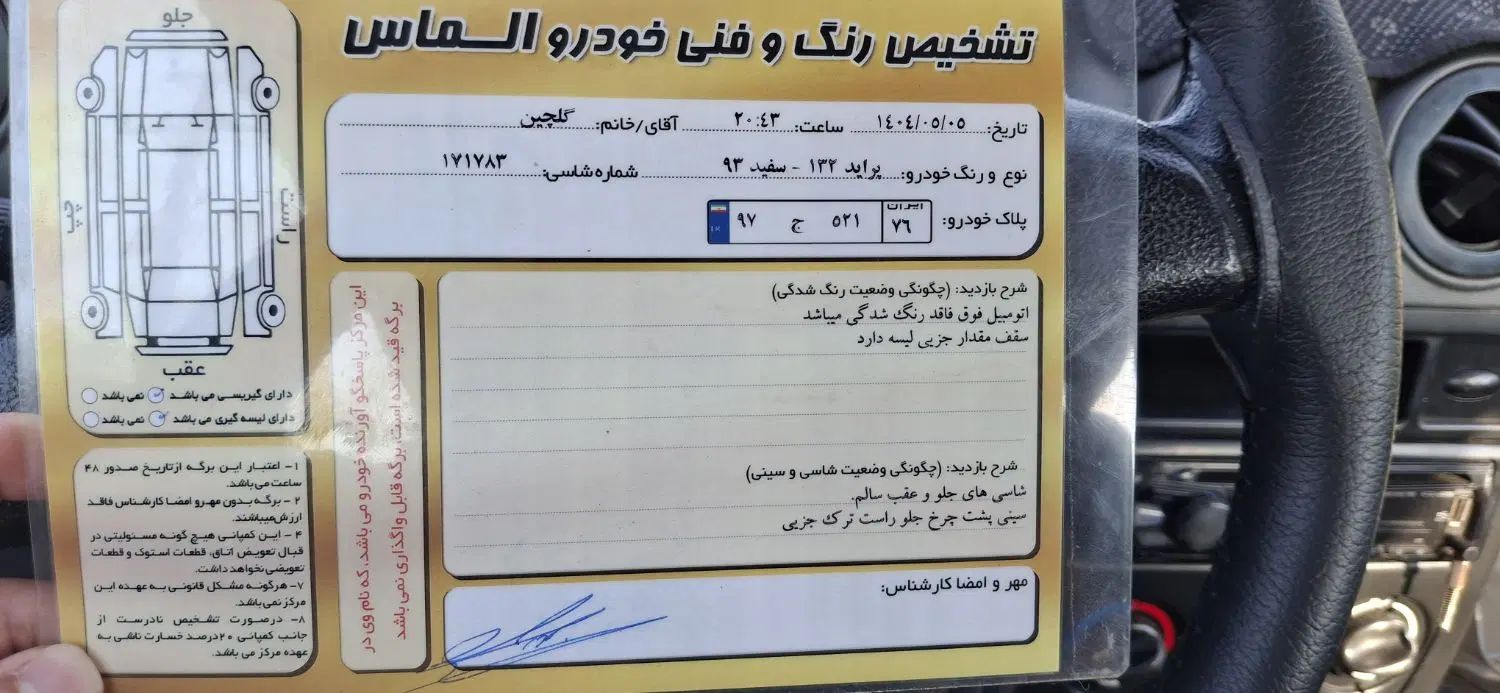 تشخیص رنگ و فنی خودرو الـمـاس
تاریخ: ۱۴۰۴/۰۵/۰۵ ساعت: ۲۰:۴۳ آقای/خانم: گلچین
نوع و رنگ خودرو: پراید ۱۳۲ - سفید ۹۳ شماره شاسی: ۱۷۱۷۸۳
پلاک خودرو: ایران ۷۶ ۵۲۱ ج ۹۷
شرح بازدید: (چگونگی وضعیت رنگ شدگی)
اتومبیل فوق فاقد رنگ شدگی میباشد
سقف مقدار جزیی لیسه دارد
شرح بازدید: (چگونگی وضعیت شاسی و سینی)
شاسی های جلو و عقب سالم.
سینی پشت چرخ جلو راست ترک جزیی
مهر و امضا کارشناس:
این مرکز پاسخگو آورنده خودرو می باشد، که نام وی در
برگه قید شده است، برگه قابل واگذاری نمی باشد
جلو
چپ
راست
عقب
دارای گیربسی می باشد نمی باشد
دارای لیسه گیری می باشد نمی باشد
۱- اعتبار این برگه از تاریخ صدور ۴۸
ساعت می باشد.
۲- برگه بدون مهر و امضا کارشناس فاقد
ارزش میباشند.
۴- این کمپانی هیچ گونه مسئولیتی در
قبال تعویض اتاق، قطعات استوک و قطعات
تعویضی نخواهد داشت.
۷- هرگونه مشکل قانونی به عهده این
مرکز نمی باشد.
۸- درصورت تشخیص نادرست از
جانب کمپانی ۲۰درصد خسارت ناشی به
عهده مرکز می باشد.